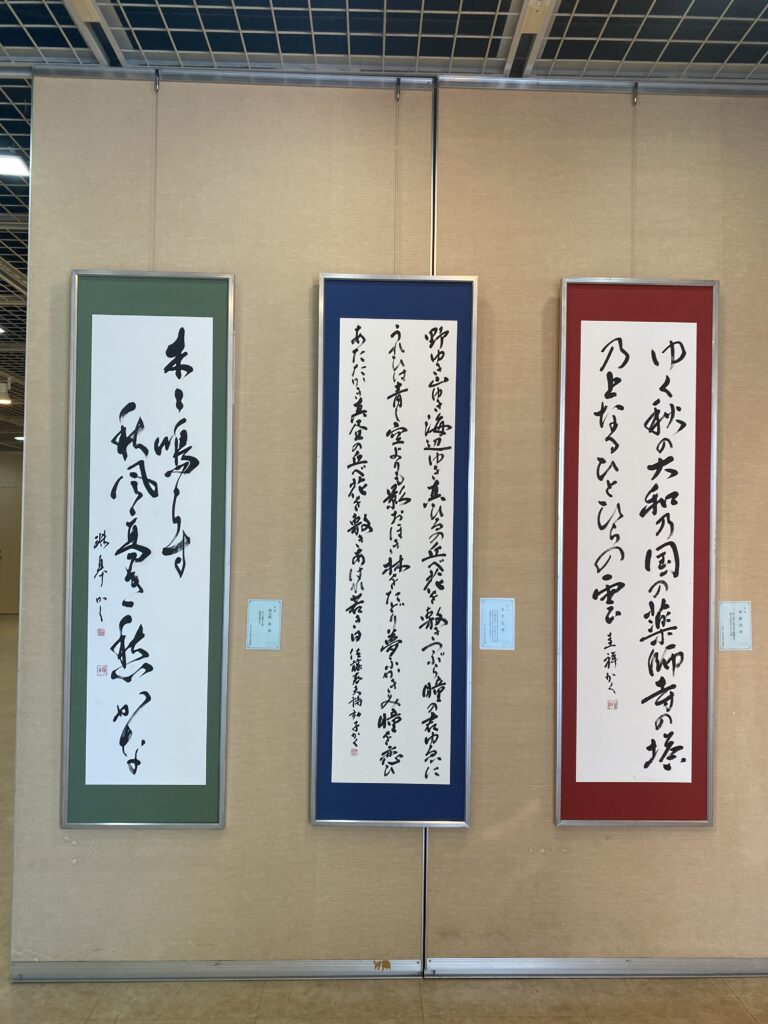 ゆく秋の大和乃国の薬師寺の塔
乃上なるひとひらの雲 圭祥かく
野ゆき山ゆき海辺ゆき真ひるの丘べ花を敷きつぶら瞳の君ゆゑに
うれひは青し空よりも影おほき林をたどり夢ふかきみ瞳を恋ひ
あたたかき真昼の丘べ花を敷きあはれ若き日 佐藤春夫詩 和子かく
木々鳴らす
秋風高き愁かな
かく